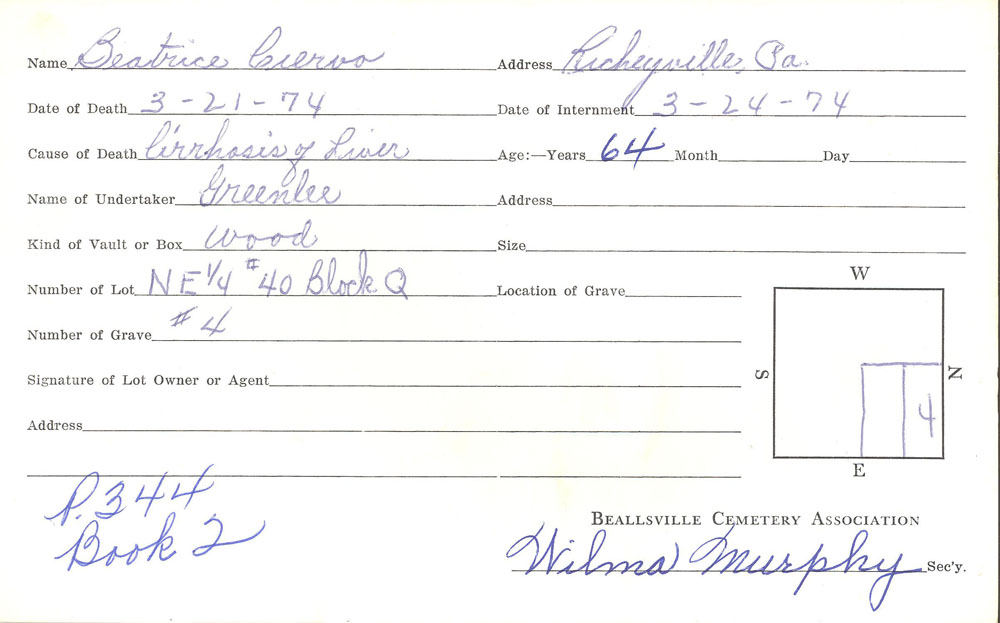 Name Beatrice Cuervo Address Richeyville, Pa.
Date of Death 3-21-74 Date of Internment 3-24-74
Cause of Death Cirrhosis of Liver Age:—Years 64 Month Day
Name of Undertaker Greenlee Address
Kind of Vault or Box Wood Size
Number of Lot NE 1/4 #40 Block Q Location of Grave
W
Number of Grave #4
Signature of Lot Owner or Agent
S N
4
Address
E
P. 344
Book 2
BEALLSVILLE CEMETERY ASSOCIATION
Wilma Murphy Sec'y.